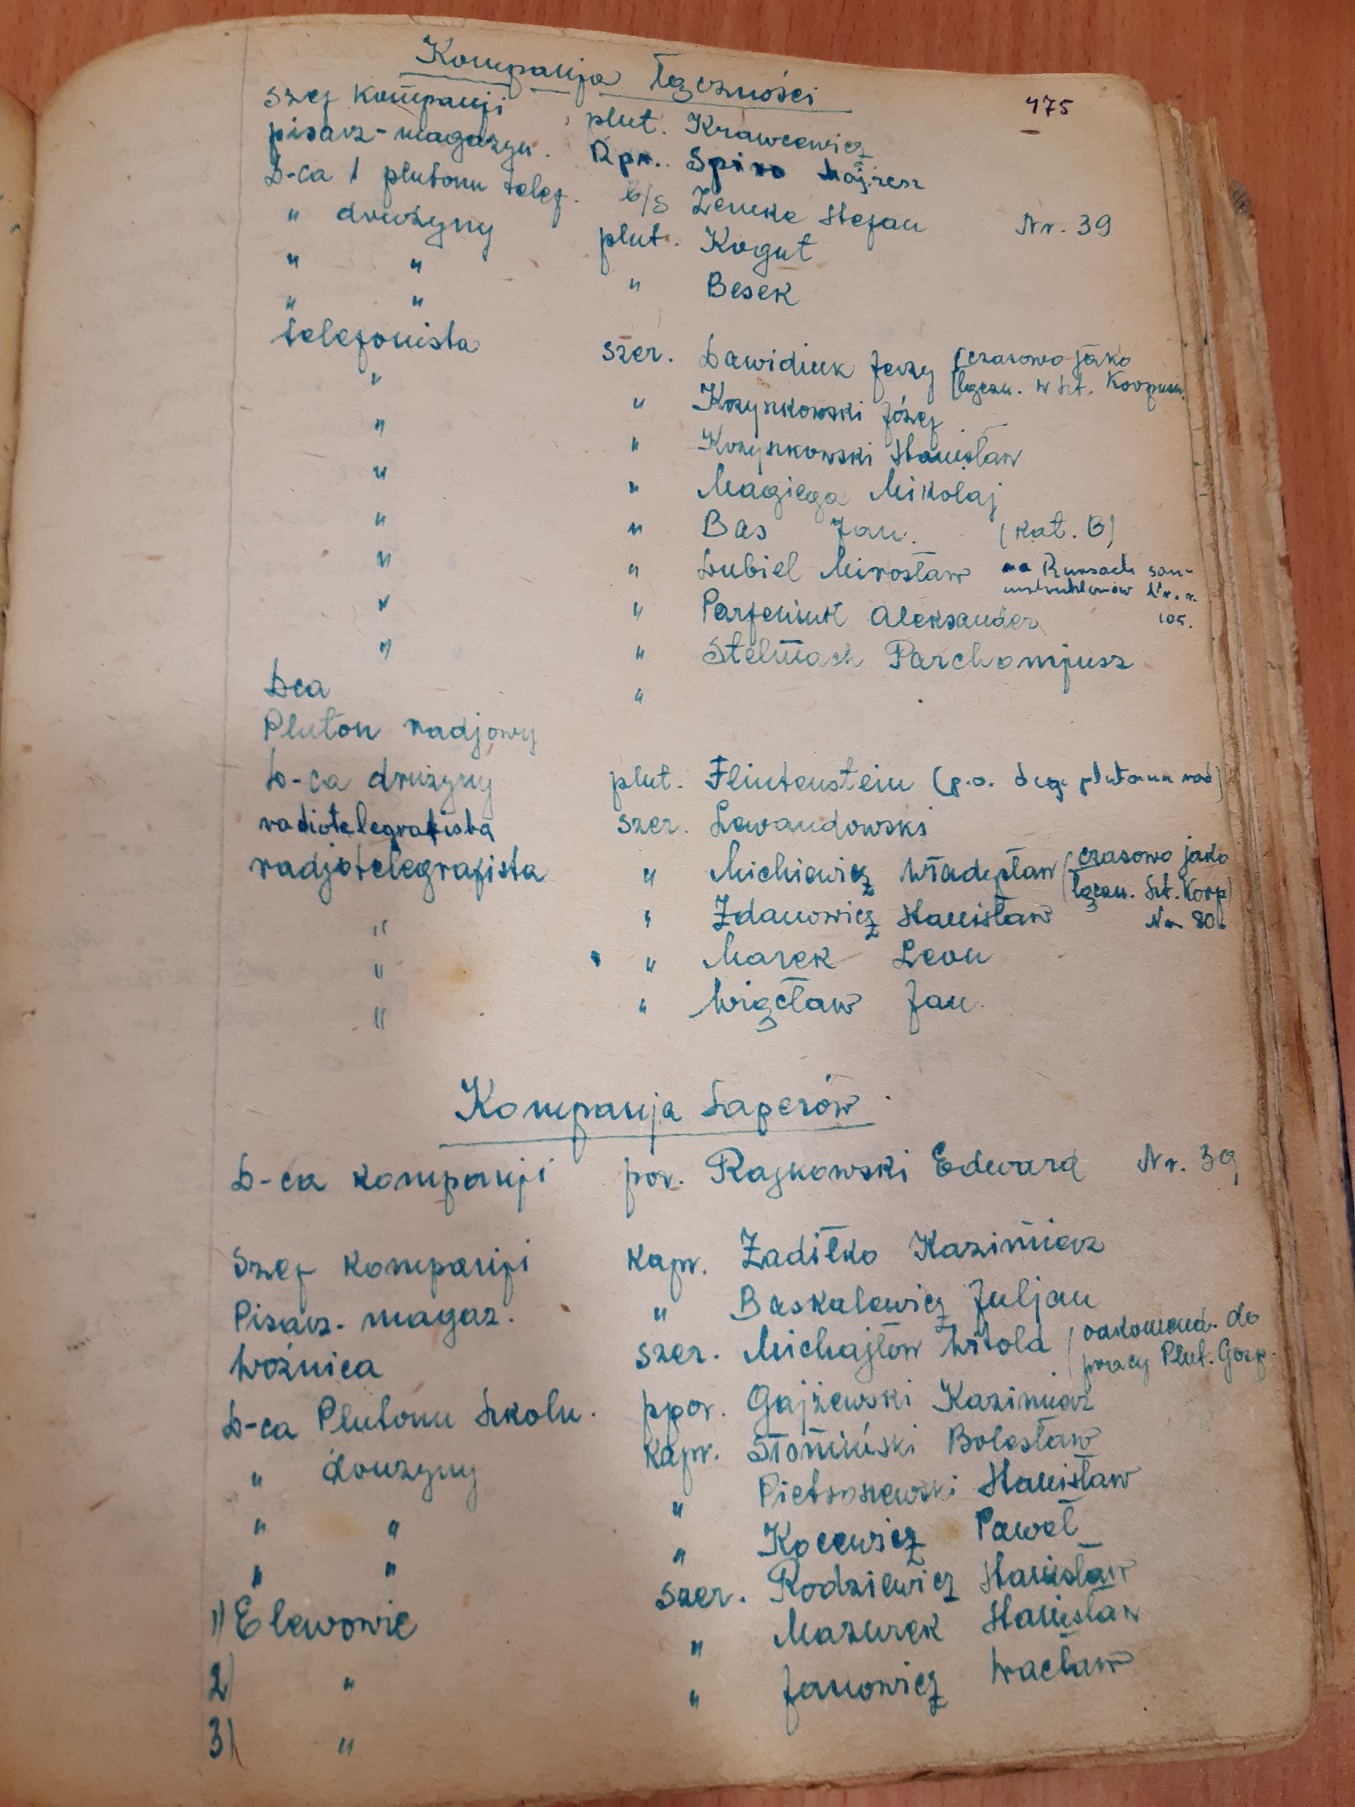 Kompanja łączności
175
szef kompanji plut. Krawcewicz
pisarz-magazyn. Kpr. Spiro Mojżesz
D-ca 1 plutonu telef. b/s Zemke Stefan Nr. 39
" drużyny plut. Kogut
" " " Besek
" "
telefonista szer. Dawidiuk Jerzy (czasowo jako
łączn. w Szt. Korpusu.
" " Kozyrkowski Józef
" " Kozyrkowski Stanisław
" " Magiega Mikołaj
" " Bas Jan. (kat. B)
" " Dubiel Mirosław na Kursach san-
instruktorów Nr. r.
105.
" " Parfeniuk Aleksander
" " Stelmach Parchomjusz
D-ca "
Pluton radjowy
D-ca drużyny plut. Flintenstein (p.o. d-cy plutonu rad)
radiotelegrafista szer. Lewandowski
radjotelegrafista " Michiewicz Władysław (czasowo jako
łączn. Szt. Korp)
" " Zdanowicz Stanisław Nr 80.
" " Marek Leon
" " Więcław Jan.
Kompanja Saperów
D-ca kompanji por. Rajkowski Edward Nr. 39
Szef kompanji kapr. Żadiłko Kazimierz
Pisarz-magaz. " Baskalewicz Juljan
Woźnica szer. Michajłow Witold (odkomend. do
pracy Plut. Gosp.
D-ca Plutonu Szkoln. ppor. Gajżewski Kazimierz
" drużyny kapr. Słomiński Bolesław
" " " Pietroszewski Stanisław
" " " Kocewicz Paweł
1) Elewowie szer. Rodziewicz Stanisław
2) " " Mazurek Stanisław
3) " " Janowicz Wacław